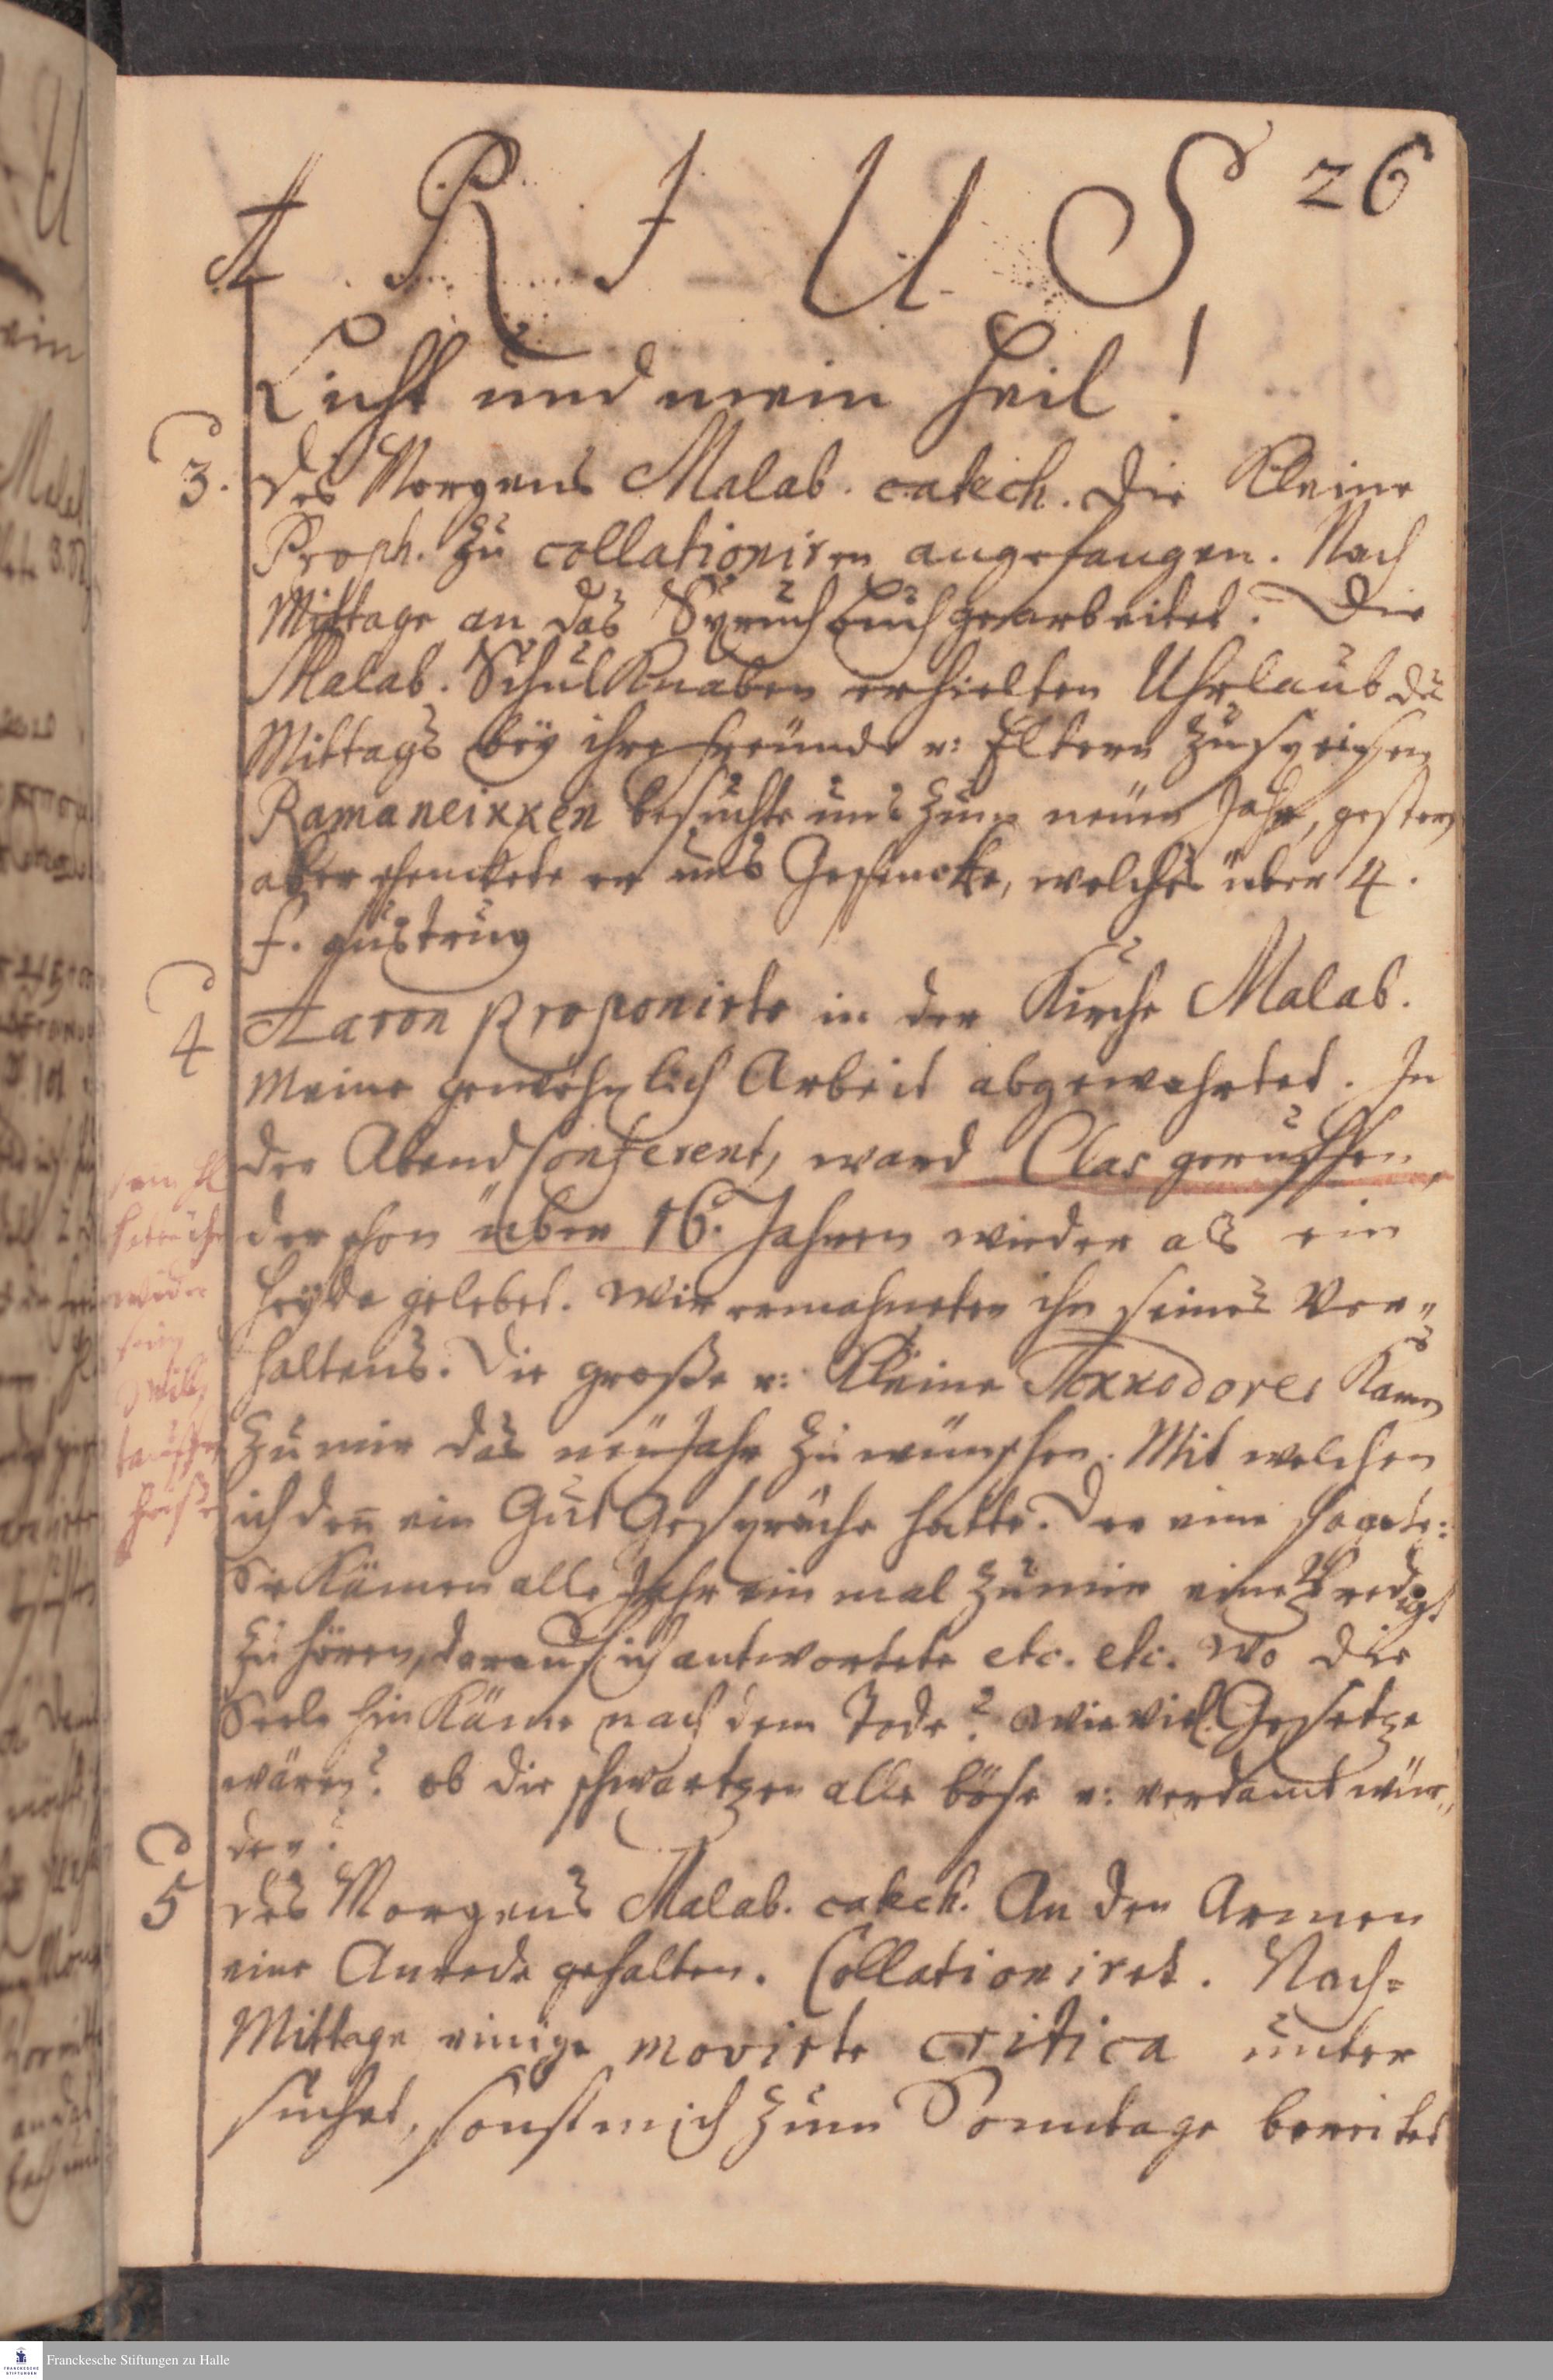 26
A R I U S
Licht und mein Heil!
3. des Morgens Malab. catech. die Kleine
Proph. zu collationiren angefangen. Nach
Mittage an das Spruchbuch gearbeitet. Die
Malab. Schul Knaben erhielten Uhrlaub des
Mittags beÿ ihre Freünde u: Eltern zu speisen
Ramaneikken besuchte uns zum neüen Jahr, gestern
aber schenckete er uns Geschencke, welches über 4.
f. austrug
4 Aaron proponirte in der Kirche Malab.
Meine gewöhnlich Arbeit abgewahrtet. In
der Abend Conferent, ward Clas geruffen,
der schon über 16. Jahren wieder als ein
Heÿde gelebet. Wir ermahneten ihn seines Ver„
haltens. Die große u: Kleine Kamen
zu mir das neü Jahr zu wünschen. Mit welchen
ich den̄ ein Gut Gespräche hatte. Der eine sagete:
Sie Kämen alle Jahr ein mal zu mir eine Predigt
zu hören, darauf ich antwortete etc. etc. Wo die
Seele hin Käme nach dem Tode? wie viel Gesetze
wären? ob die schwartzen alle böse u: verdamt wür„
den?
5 des Morgens Malab. catech. An den Armen
eine Anrede gehalten. Collationiret. Nach=
Mittage einige movirte critica unter
suchet, sonst mich zum Sonntage bereitet
Franckesche Stiftungen zu Halle